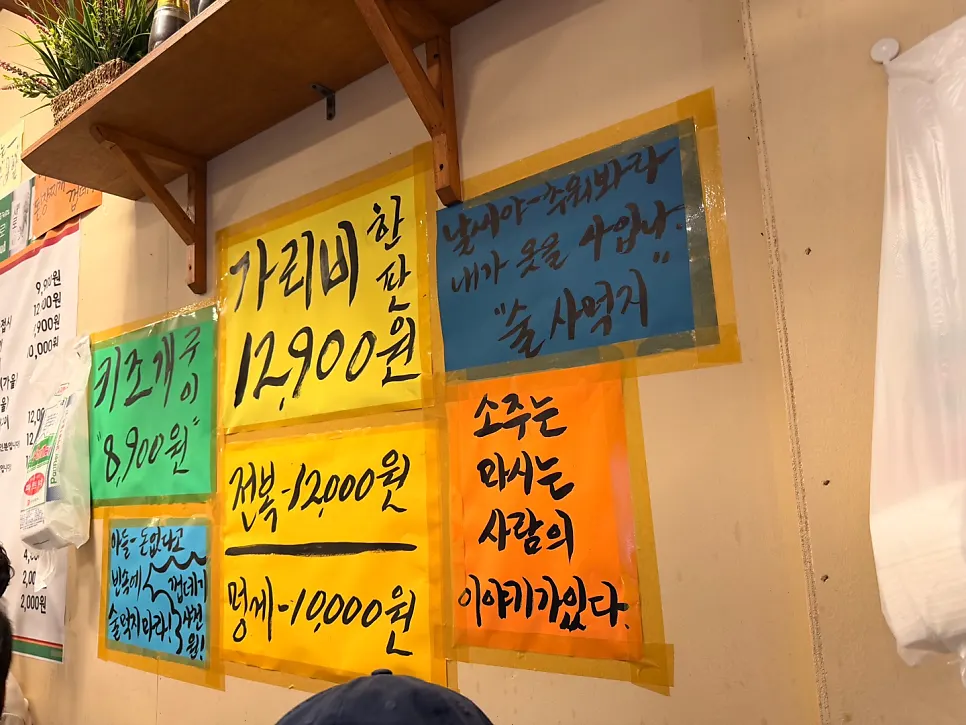 가리비 한판
12,900원
날씨야-추워봐라
내가 옷을 사입나.
"술 사먹지"
키조개 구이
"8,900원"
전복-12,000원
멍게-10,000원
소주는
마시는
사람의
이야기가있다.
아들-돈없다고
빈속에
술먹지마라!
껍데기
사천
원!
9,900원
10,000원
2,000원